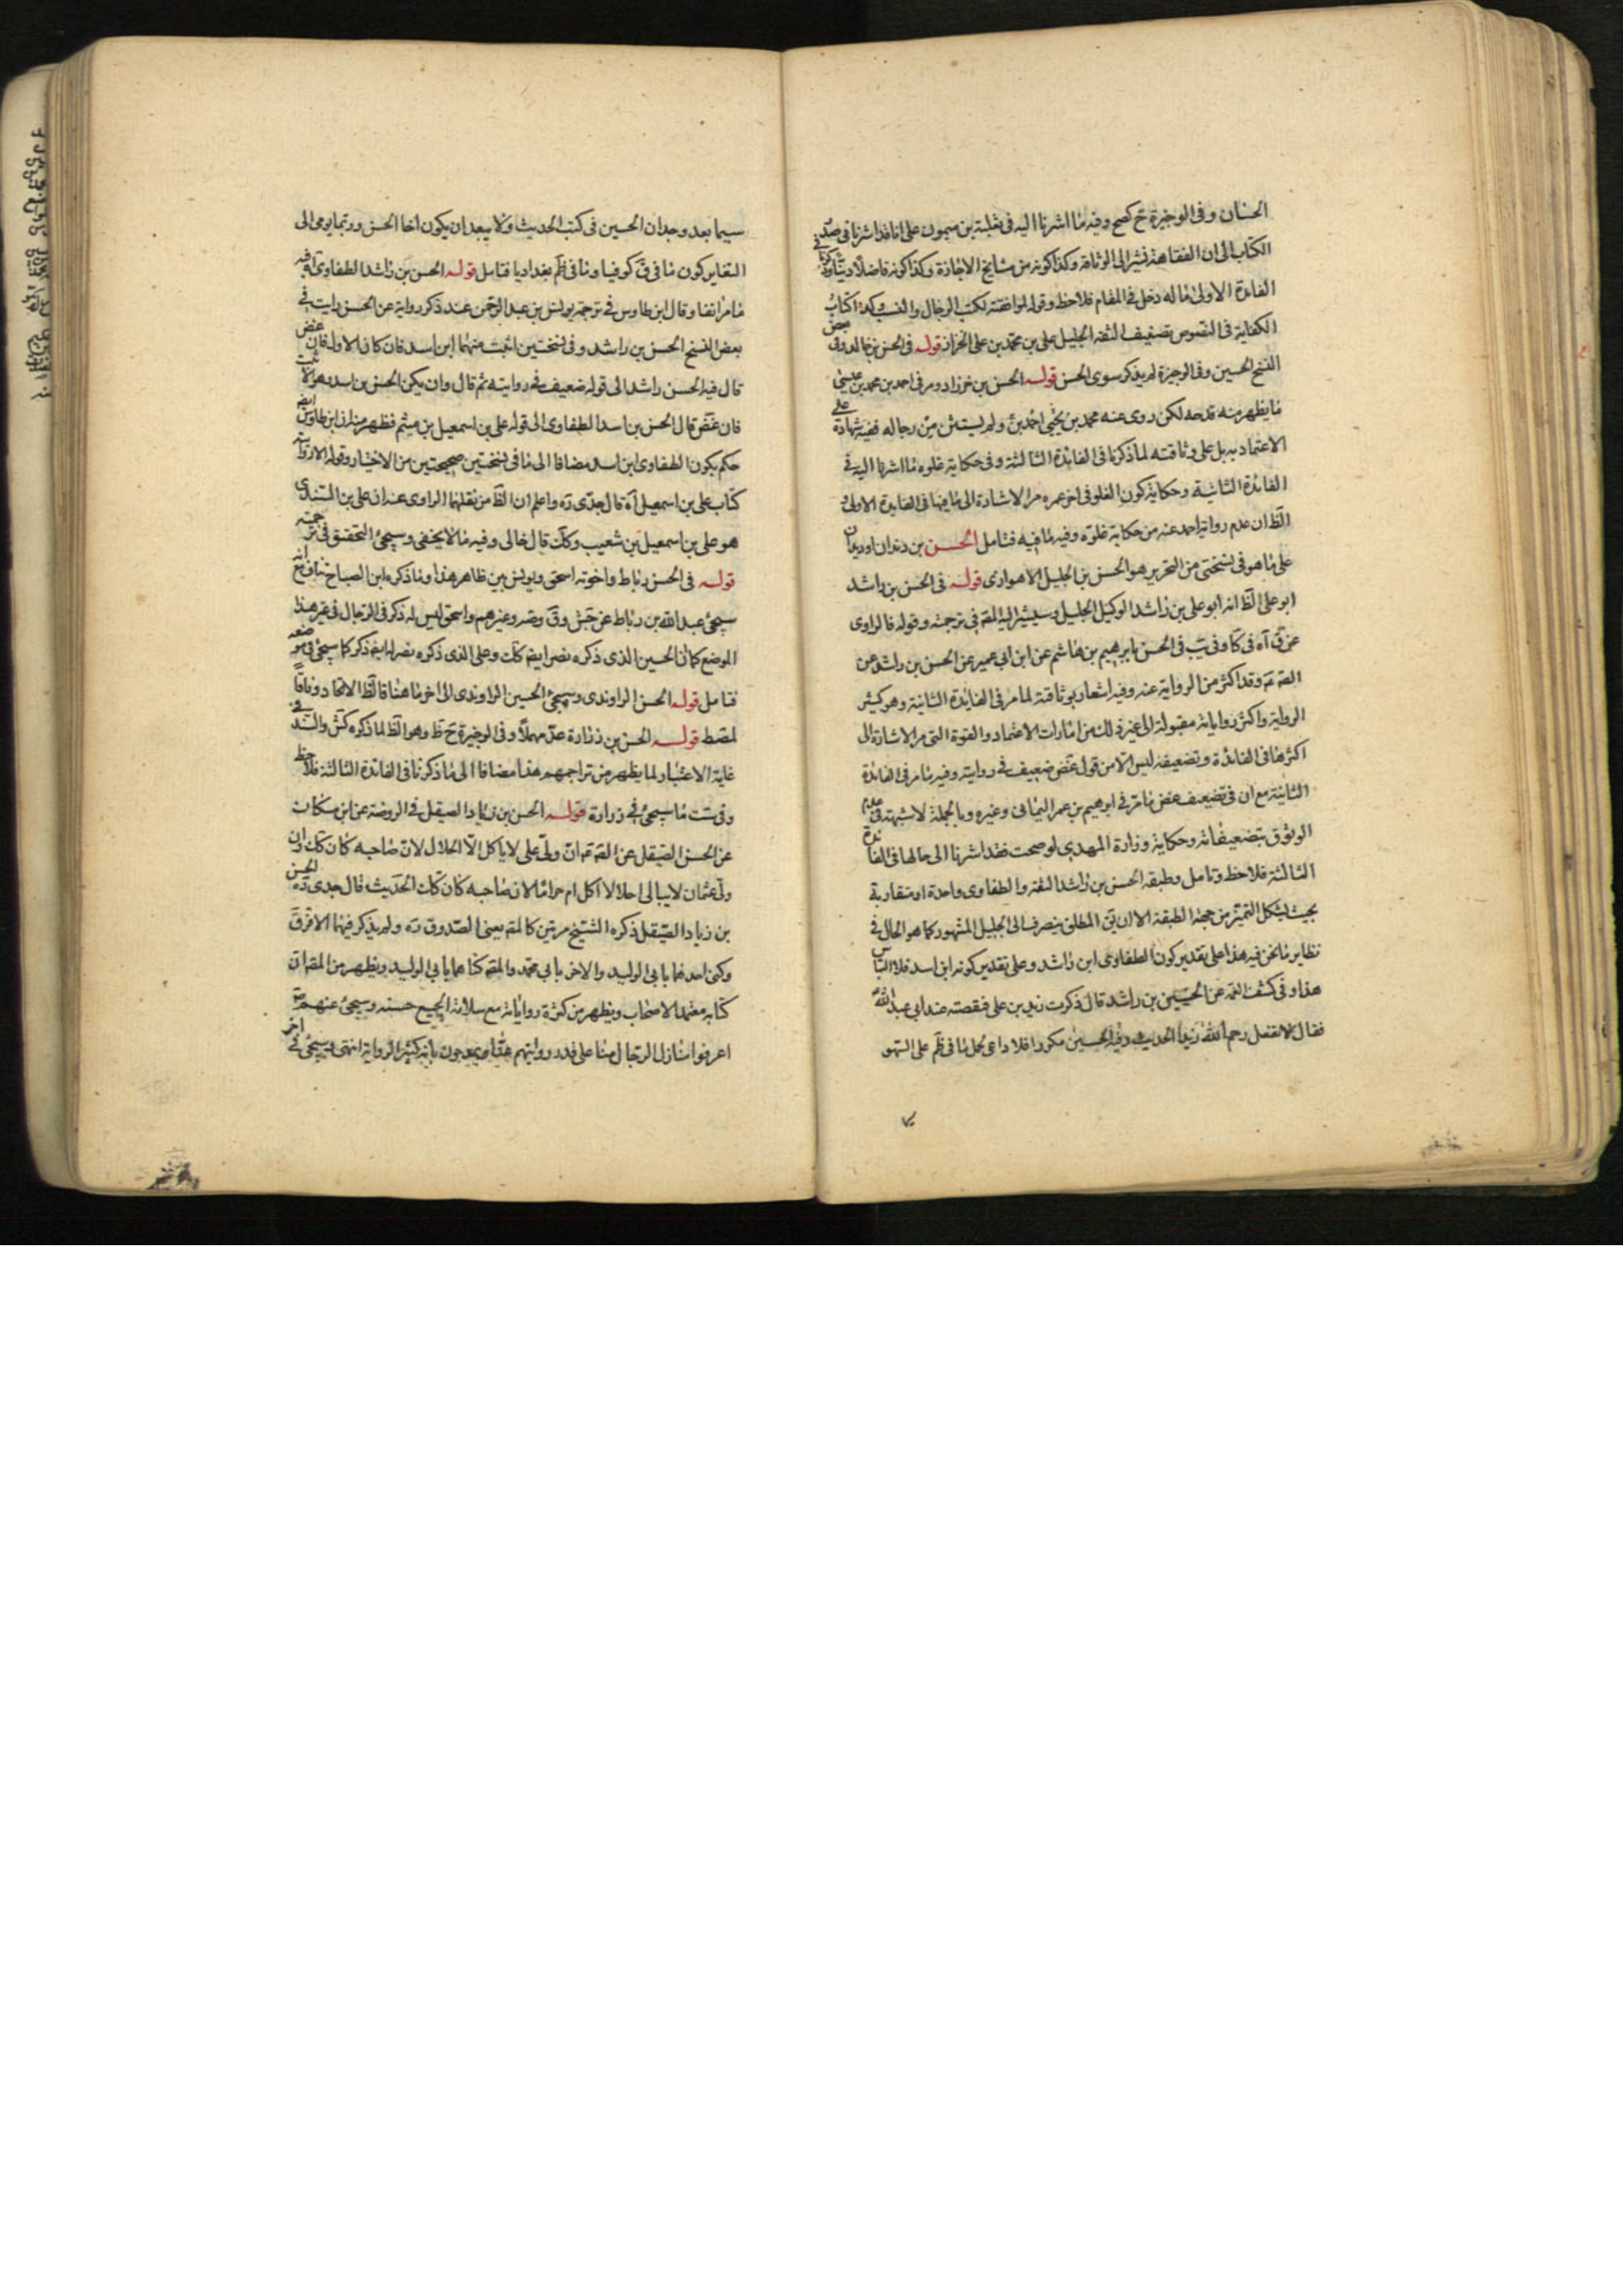 الحسان وفى الوجيزة ح كصح وفيه ما اشرنا اليه فى ثعلبة بن ميمون على انا قد اشرنا فى صدر
الكتاب الى ان الفقاهة تشير الى الوثاقة وكذا كونه من مشايخ الاجازة وكذا كونه فاضلا دينا وذكرنا فى
الفائدة الاولى ما له دخل فى المقام فلاحظ وقوله لموافقته لكتب الرجال والنسب وكذا كتاب
الكفاية فى النصوص تصنيف الثقة الجليل على بن محمد بن على الخزاز قوله فى الحسن بن خالد وفى بعض
النسخ الحسين وفى الوجيزة لم يذكر سوى الحسن قوله الحسن بن خرزاد ومر فى احمد بن محمد بن عيسى
ما يظهر منه قدحه لكن روى عنه محمد بن يحيى احمد بن ولم يستثن من رجاله ففيه شهادة على
الاعتماد به بل على وثاقته لما ذكرنا فى الفائدة الثالثة وفى حكاية غلوه ما اشرنا اليه فى
الفائدة الثانية وحكاية كون الغلو فى اخر عمره مر الاشارة الى ما فيها فى الفايدة الاولى و
الظ ان عدم رواية احمد عنه من حكاية غلوه وفيه ما فيه فتامل الحسن بن دندان اوديدان
على ما هو فى نسختى من التحرير هو الحسن بن الجليل الاهوازى قوله فى الحسن بن راشد
ابو على الظ انه ابو على بن راشد الوكيل الجليل وسيشير اليه المصه فى ترجمته وقوله فالراوى
عن ق آه فى كا وفى يب فى الحسن بابرهيم بن هاشم عن ابن ابى عمير عن الحسن بن راشد عن
الصه عه وقد اكثر من الرواية عنه وفيه اشعار بوثاقته لما مر فى الفائدة الثانية وهو كثير
الرواية واكثر رواياته مقبولة الى غير ذلك من امارات الاعتماد والقوة التى مر الاشارة الى
اكثرها فى الفائدة وتضعيفه ليس الا من قول غض ضعيف فى روايته وفيه ما مر فى الفائدة
الثانية مع ان فى تضعيف غض ما مر فى ابرهيم بن عمر اليمانى وغيره وبالجملة لا شبهة فى عدم
الوثوق بتضعيفاته وحكاية وزارة المهدى لو صحت فقد اشرنا الى حالها فى الفائدة
الثالثة فلاحظ وتامل وطبقة الحسن بن راشد الثقة والطفاوى واحدة او متقاربة
بحيث يشكل التميز من جهة الطبقة الا ان المطلق ينصرف الى الجليل المشهور كما هو الحال فى
نظاير ما نحن فيه هذا على تقدير كون الطفاوى ابن راشد وعلى تقدير كونه ابن اسد فلا التباس
هذا وفى كشف الغمه عن الحسين بن راشد قال ذكرت زيد بن على فنقصته عند ابى عبد الله
فقال لا تفعل رحم الله زيدا الحديث وفيه الحسين مكررا فلا داعى لحمل ما فى ظم على السهو
سيما بعد وجدان الحسين فى كتب الحديث ولا يبعد ان يكون اخا الحسن وربما يومى الى
التغاير كون ما فى ق كوفيا وما فى ظم بغداديا فتامل قوله الحسن بن راشد الطفاوى آه فيه
ما مر انفا وقال ابن طاوس فى ترجمة يونس بن عبد الرحمن عند ذكر رواية عن الحسن رايت فى
بعض النسخ الحسن بن راشد وفى نسختين اثبت منهما ابن اسد فان كان الاول فان غض
قال فيه الحسن راشد الى قوله ضعيف فى روايته ثم قال وان يكن الحسن بن اسد
فان غض قال الحسن بن اسد الطفاوى الى قوله على بن اسمعيل بن ميثم فظهر منه ان ابن طاوس ايضه
حكم بكون الطفاوى ابن اسد مضافا الى ما فى نسختين صحيحتين من الاختيار وقوله الا رواية
كتاب على بن اسمعيل آه قال جدى ره واعلم ان الظ من نقلهما الراوى عنه ان على بن السندى
هو على بن اسمعيل بن شعيب وكك قال خالى وفيه ما لا يخفى وسيجئ التحقق فى ترجمته
قوله فى الحسن رباط واخوته اسحق ويونس بين ظاهر هذا وما ذكره ابن الصباح تناف مع انه
سيجئ عبد الله بن رباط عن جش وق وضه وغيرهم واسحق ليس له ذكر فى الرجال فى غير هذا
الموضع كما ان الحسين الذى ذكره نصر ايضه كك وعلى الذى ذكره نصر له ايضه ذكر كما سيجئ فى موضعه
فتامل قوله الحسن الراوندى وسيجئ الحسين الراوندى الى اخر ما هنا فالظ الاتحاد وفاقا
لمصط قوله الحسن بن زرارة عد مهملا وفى الوجيزة ح ظ وهو الظ لما ذكره كش والسند فى
غاية الاعتبار لما يظهر من تراجمهم هذا مضافا الى ما ذكرنا فى الفائدة الثالثة فلاحظ
وفى ست ما سيجئ فى زرارة قوله الحسن بن زياد الصيقل فى الروضة عن ابن مسكان
عن الحسن الصيقل عن الصه عه ان ولى على لا ياكل الا الحلال لان صاحبه كان كك وان
ولى عثمان لا يبالى احلالا اكل ام حراما لان صاحبه كان كك الحديث قال جدى ره الحسن
بن زياد الصيقل ذكره الشيخ مرتين كالمصه يعنى الصدوق ره ولم يذكر فيهما الا فى ق
وكنى احدهما بابى الوليد والاخر بابى محمد والمصه كناهما بابى الوليد ويظهر من المصه ان
كتابه معتمد الاصحاب ويظهر من كثرة رواياته مع سلامة الجميع حسنه وسيجئ عنهم
اعرفوا منازل الرجال منا على قدر روايتهم عنا بانه كثير الرواية انتهى وسيجئ فى اخر